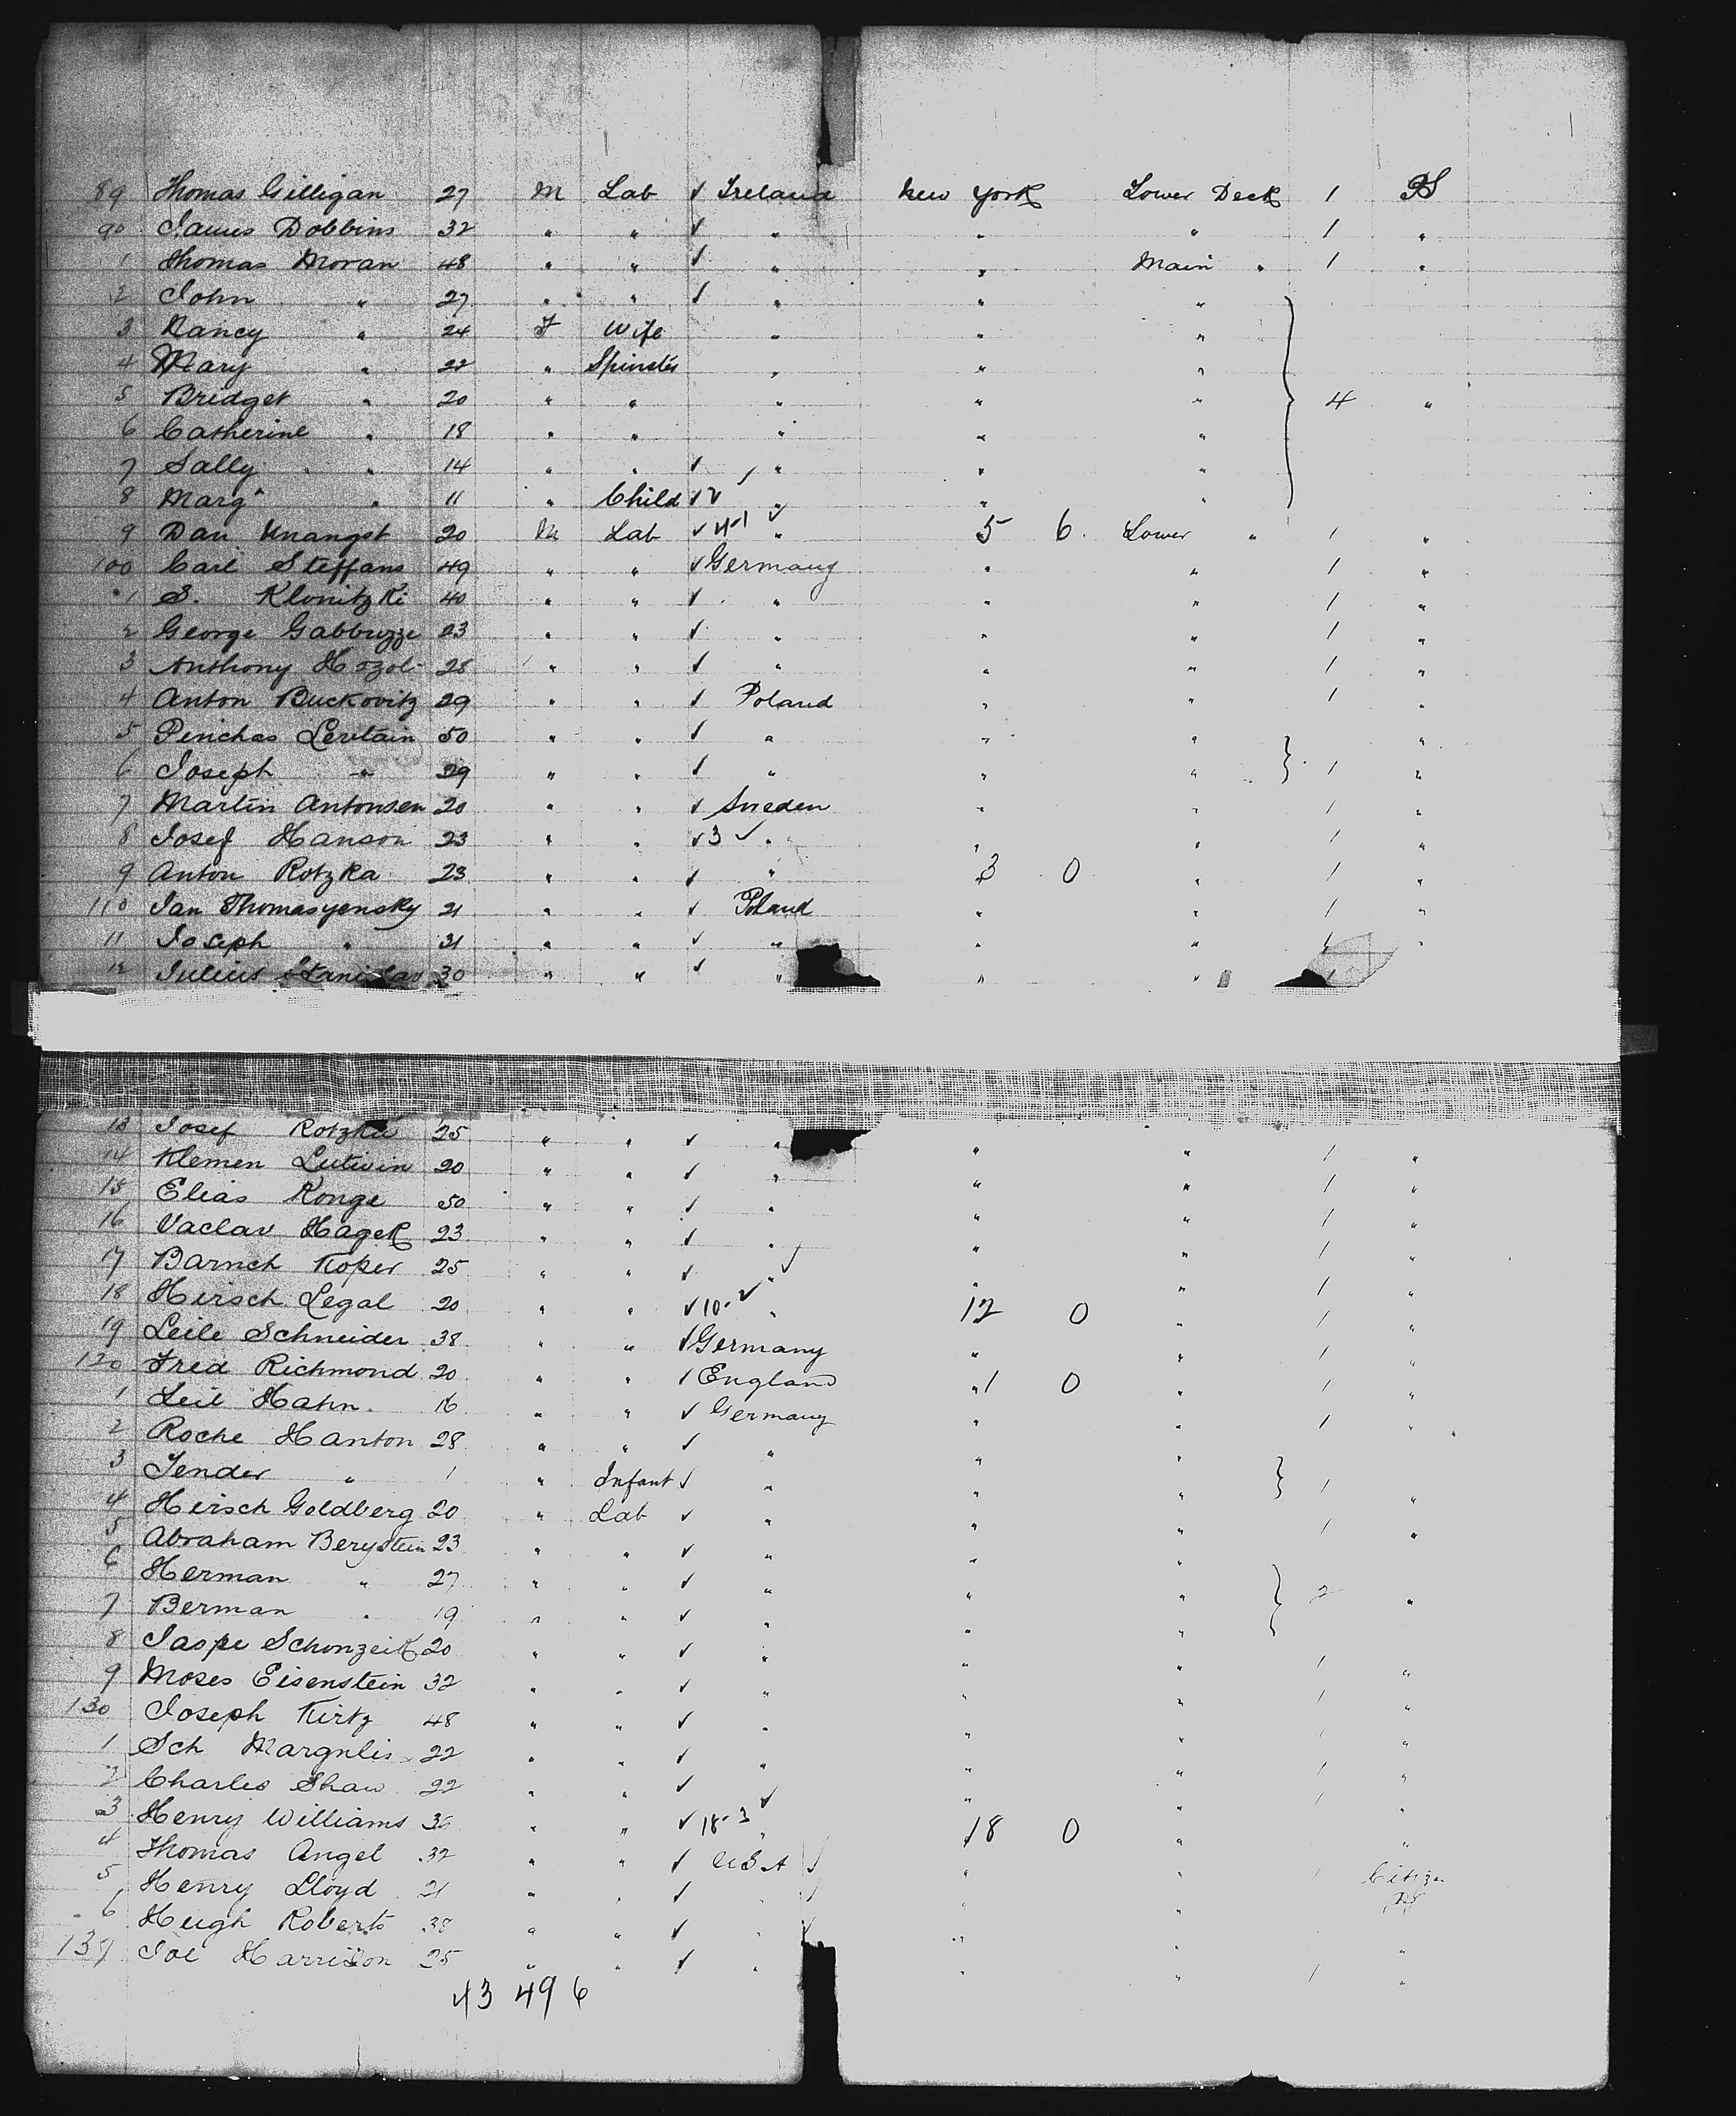 89 Thomas Gilligan 27 M Lab ✓ Ireland New York Lower Deck 1 PS
90 James Dobbins 32 " " ✓ " " " 1 "
1 Thomas Moran 48 " " ✓ " " Main " 1 "
2 John " 27 " " ✓ " " "
3 Nancy " 24 F Wife " " "
4 Mary " 22 " Spinster " " "
5 Bridget " 20 " " " " " 4 "
6 Catherine " 18 " " " " "
7 Sally " 14 " " ✓ " " "
8 Marg " 11 " Child ✓ " " "
9 Dan Unangst 20 M Lab ✓ 4-1 ✓ " 5 6 Lower " 1 "
100 Carl Steffans 49 " " ✓ Germany " " 1 "
1 S. Klonitzki 40 " " ✓ " " " 1 "
2 George Gabbruzze 23 " " ✓ " " " 1 "
3 Anthony Hozol 28 " " ✓ " " " 1 "
4 Anton Buckovitz 29 " " ✓ Poland " " 1 "
5 Pinchas Levtain 50 " " ✓ " " " "
6 Joseph " 29 " " ✓ " " " 1 "
7 Martin Antonsen 20 " " ✓ Sweden " " 1 "
8 Josef Hanson 23 " " ✓ 3 ✓ " " " 1 "
9 Anton Rotzka 23 " " ✓ " 3 0 " 1 "
110 Jan Thomasyensky 21 " " ✓ Poland " " 1 "
11 Joseph " 31 " " ✓ " " " "
12 Julius Stanislav 30 " " ✓ " " " 1
13 Josef Rotzka 25 " " ✓ " " " 1 "
14 Klemen Lutivin 20 " " ✓ " " " 1 "
15 Elias Konge 50 " " ✓ " " " 1 "
16 Vaclav Hagek 23 " " ✓ " " " 1 "
17 Barnch Koper 25 " " ✓ " " " 1 "
18 Hirsch Legal 20 " " ✓ 10-2 ✓ " 12 0 " 1 "
19 Leile Schneider 38 " " ✓ Germany " " 1 "
120 Fred Richmond 20 " " ✓ England " 1 0 " 1 "
1 Leil Hahn 16 " " ✓ Germany " " 1 "
2 Roche Hanton 28 " " ✓ " " "
3 Jender " 1 " Infant ✓ " " " 1 "
4 Hirsch Goldberg 20 " Lab ✓ " " " 1 "
5 Abraham Berystein 23 " " ✓ " " "
6 Herman " 27 " " ✓ " " " 2 "
7 Berman " 19 " " ✓ " " "
8 Jaspe Schonzeik 20 " " ✓ " " " 1 "
9 Moses Eisenstein 32 " " ✓ " " " 1 "
130 Joseph Kirtz 48 " " ✓ " " " 1 "
1 Sch Margnlis 22 " " ✓ " " " 1 "
2 Charles Shaw 22 " " ✓ " " 1 "
3 Henry Williams 36 " " ✓ 18-3 ✓ " 18 0 " "
4 Thomas Angel 32 " " ✓ USA ✓ " " 1 Citizen
5 Henry Lloyd 21 " " ✓ " " " PS
6 Hugh Roberts 38 " " ✓ " " " "
137 Joe Harrison 25 " " ✓ " " " 1 "
43 49 6